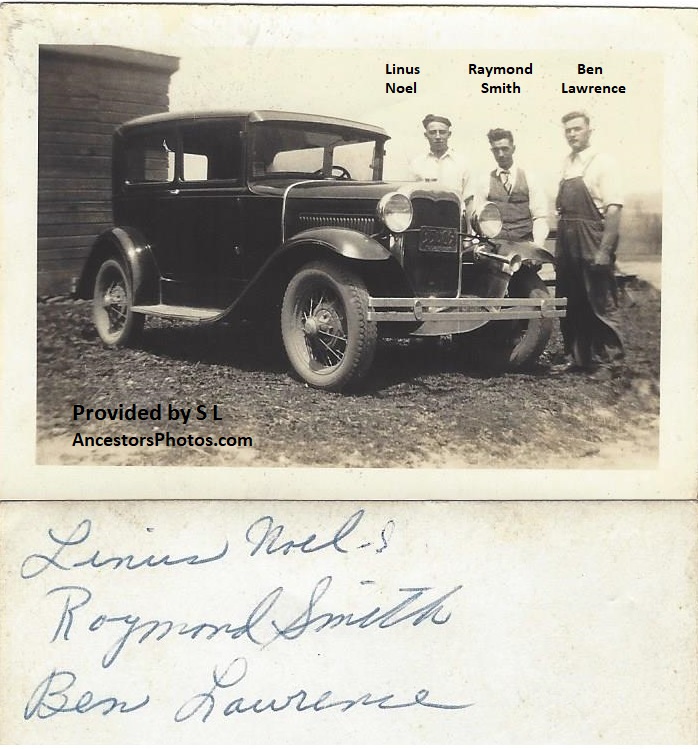 Linus
Noel
Raymond
Smith
Ben
Lawrence
Provided by S L
AncestorsPhotos.com
Linus Noel-s
Raymond Smith
Ben Lawrence